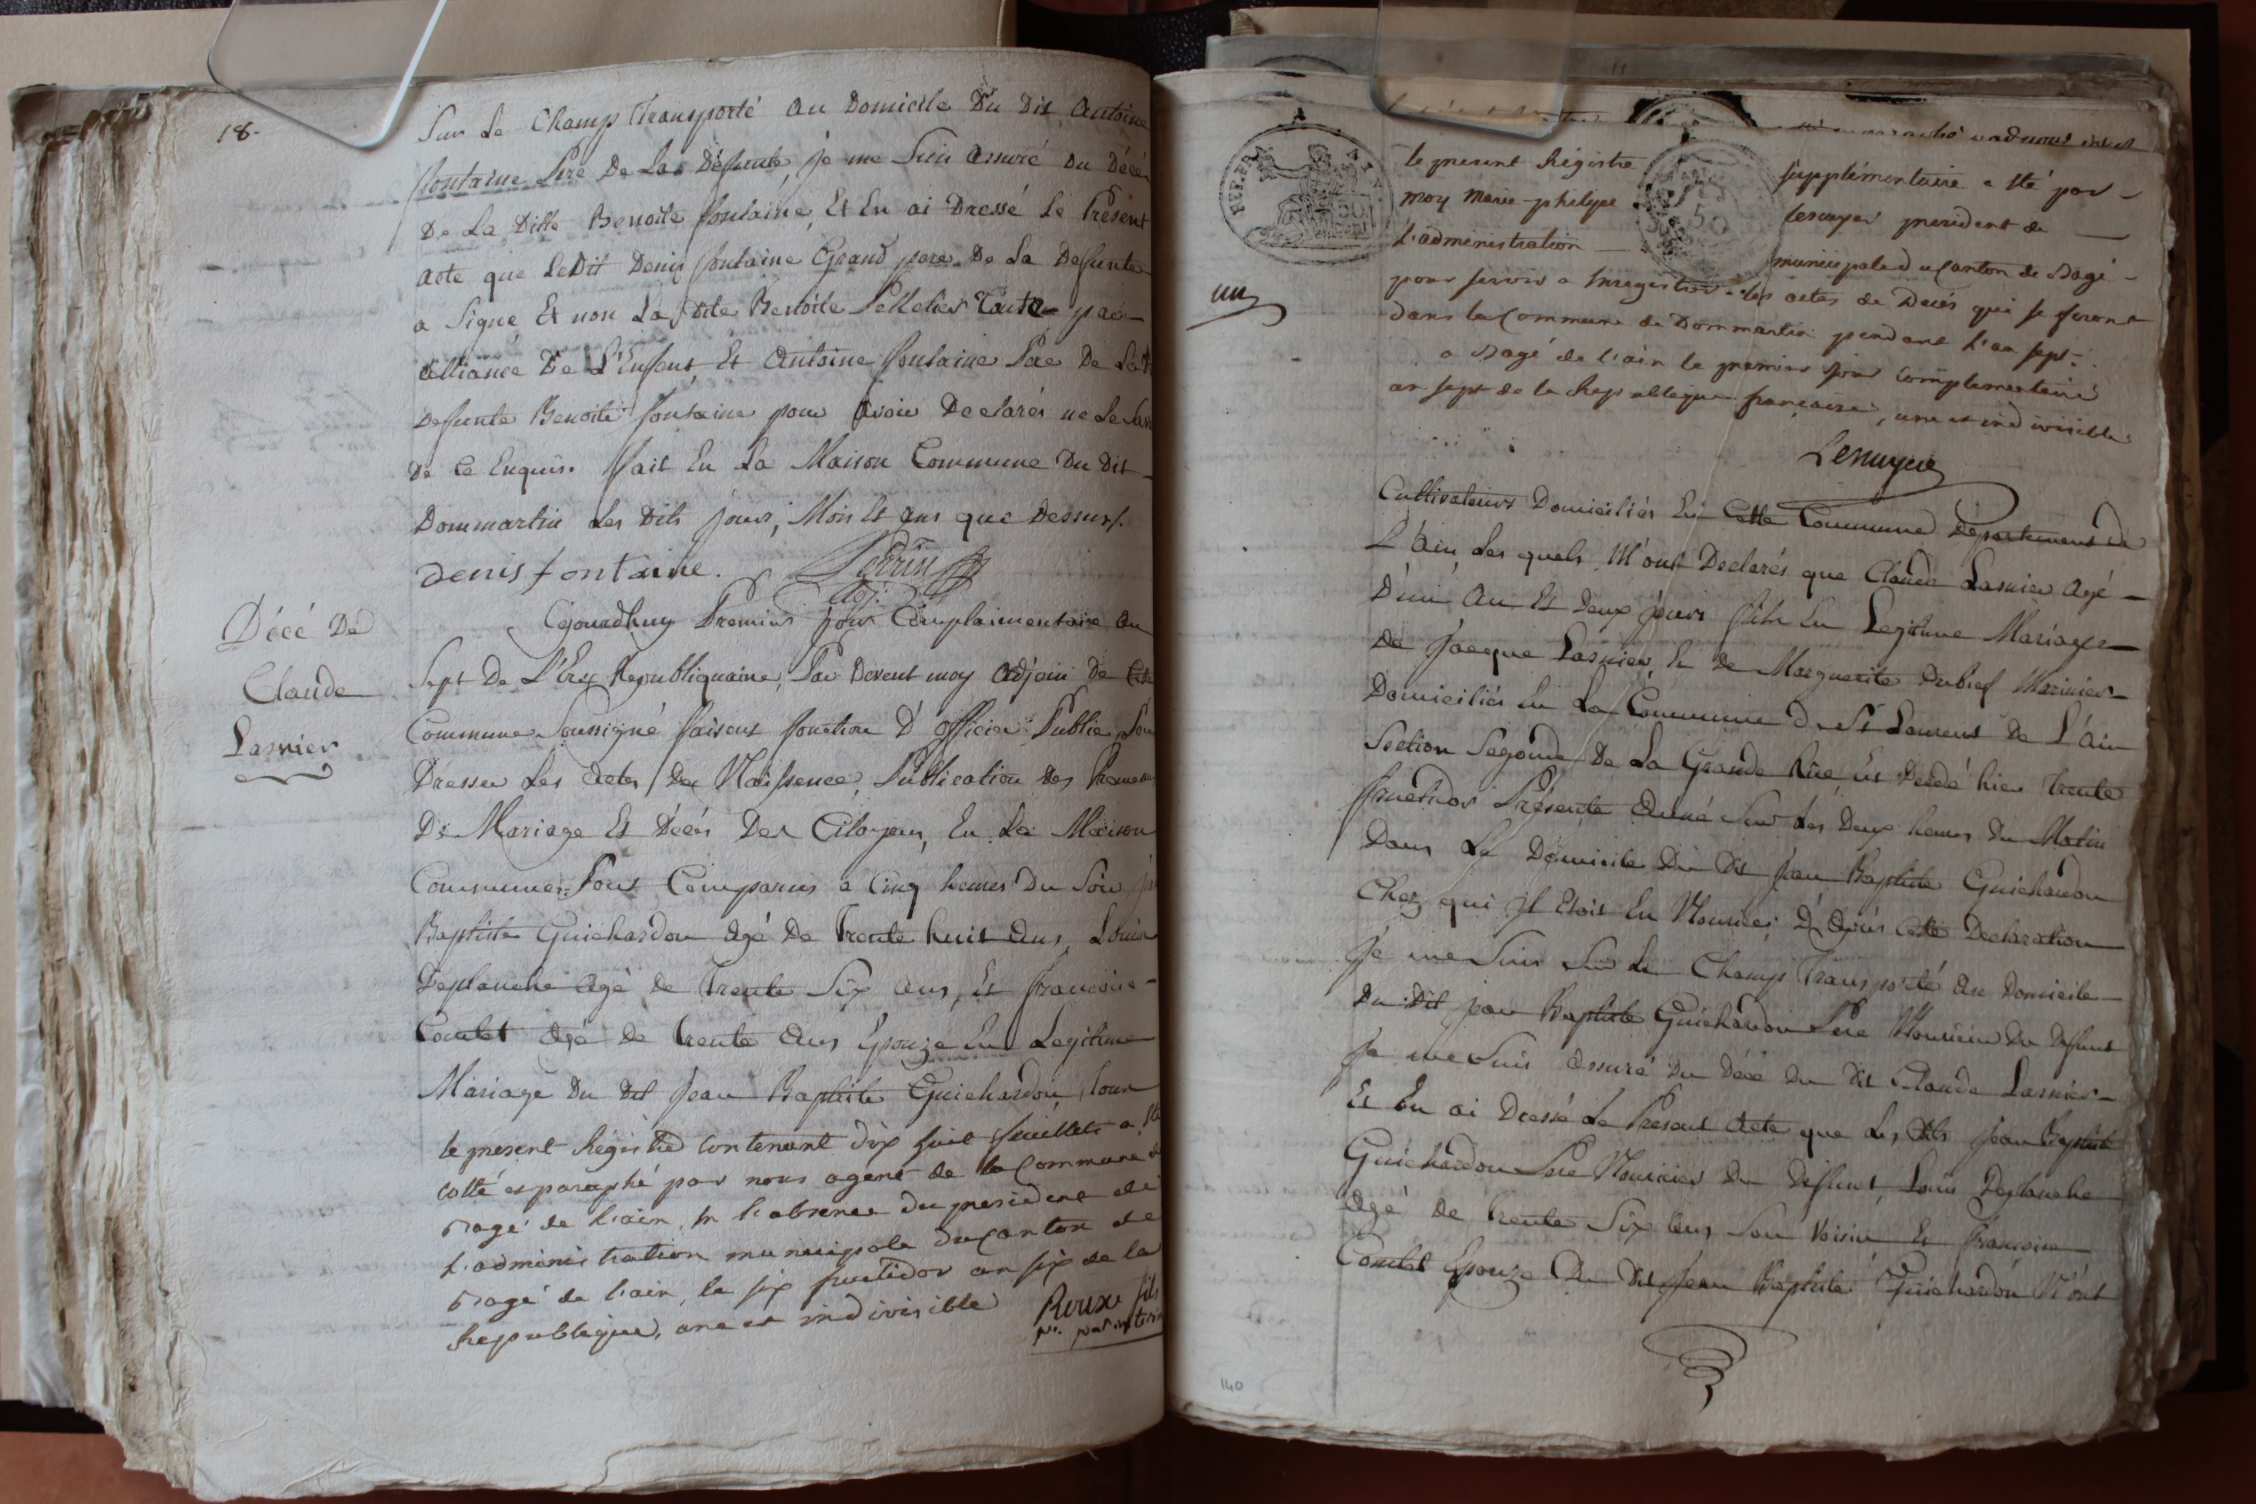 18.
Sur Le Champ Transporté au Domicile Du Dit Antoine
fontaine Pere De La Défunte, je me Suis assuré Du Décé
De La Ditte Benoite fontaine, Et En ai Dressé Le Présent
acte que LeDit Denis fontaine Grand pere De La Defunte
a Signé Et non La dite Benoite Pelletier Tante par
alliance De L'Enfant Et Antoine fontaine Pere De La
Defunte Benoite fontaine pour avoir Declarés ne Le Sav
De Ce Enquis. fait En La Maison Commune Du Dit
Dommartin Les Dits jours, Mois Et ans que Dessus.
denis fontaine. Perrin
adj.
Décé De
Claude
Lasnier
Cejourdhuy Premier jour Complaimentaire an
Sept De L'Ery Republiquaine, Par Devent moy adjoin De Cete
Commune Soussigné faisent fonction D'officier Public, Pour
Dresser Les actes De Naissence, Publication Des Promesse
De Mariage Et Décés Des Citoyens, En La Maison
Commune Sont Comparus a Cinq heures Du Soir
Baptiste Guichardon agé De Trente huit ans, Louis
Deplanche agé de Trente Six ans, Et francoise
Coulet agé de trente ans Epouze En Legitime
Mariage Du dit Jean Baptiste Guichardon, tous
le present Régistre Contenant dix huit feuillets a été
cotté et paraphé par nous agent de la Commune de
Bagé de l'ain, en l'absence du president de
L'administration municipale du Canton de
Bagé de l'ain, le six fructidor an six de la
République, une et indivisible
Roux fils
140
REP.FRA
50
un
le present Régistre supplémentaire a été par
moy Marie-philipe Lescuyer president de
L'administration municipale du Canton de Bagé
pour servir a Enregistrer les actes de Decés qui se feront
dans la Commune de Dommartin pendant l'an sept
a Bagé de l'ain le premier jour complementaire
an sept de la République francaise, une et indivisible
Lescuyer
Cultivateurs Domiciliés En Cette Commune Département de
L'ain, Les quels M'ont Declarés que Claude Lasnier agé
D'un An Et Deux jours fils En Legitime Mariage
De Jacque Lasnier, Et de Marguerite Dubief Marinier
Domiciliés En La Commune de St Laurent De L'ain
Section Segonde De La Grande Rüe, Est Décédé hier trente
fructidor Présente année Sur Les Deux heures Du Matin
Dans Le Domicile Du Dit Jean Baptiste Guichardon
Chez qui il Etoit En Nourice, D'Aprés Cette Declaration
Je me Suis Sur Le Champ Transporté au Domicile
Du Dit jean Baptiste Guichardon Pere Nouricier Du Defunt
Je me Suis assuré Du Décé du dit Claude Lasnier
Et En ai Dressé Le Present Acte que Les dits jean Baptiste
Guichardon Pere Nouricier Du Defunt, Louis Deplanche
agé de trente Six ans Son Voisin Et francoise
Coulet Epouze Du dit Jean Baptiste Guichardon N'ont